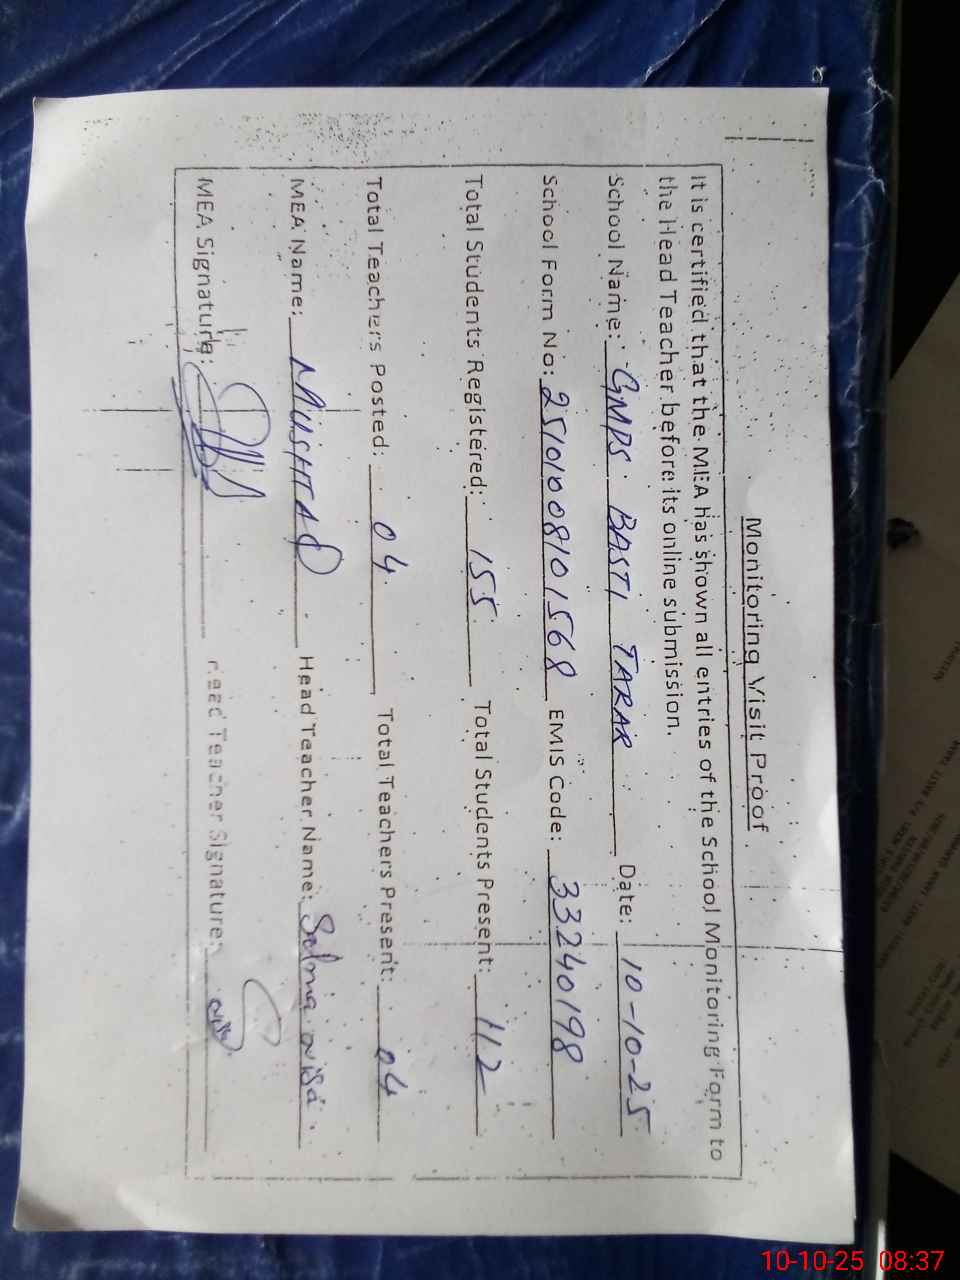 Monitoring Visit Proof
It is certified that the MEA has shown all entries of the School Monitoring Form to
the Head Teacher before its online submission.
School Name: GMPS BASTI TARAR Date: 10-10-25
School Form No: 25101008101568 EMIS Code: 33240198
Total Students Registered: 155 Total Students Present: 112
Total Teachers Posted: 04 Total Teachers Present: 04
MEA Name: MUSHTAQ Head Teacher Name: Salma nisa
MEA Signature: Head Teacher Signature:
10-10-25 08:37